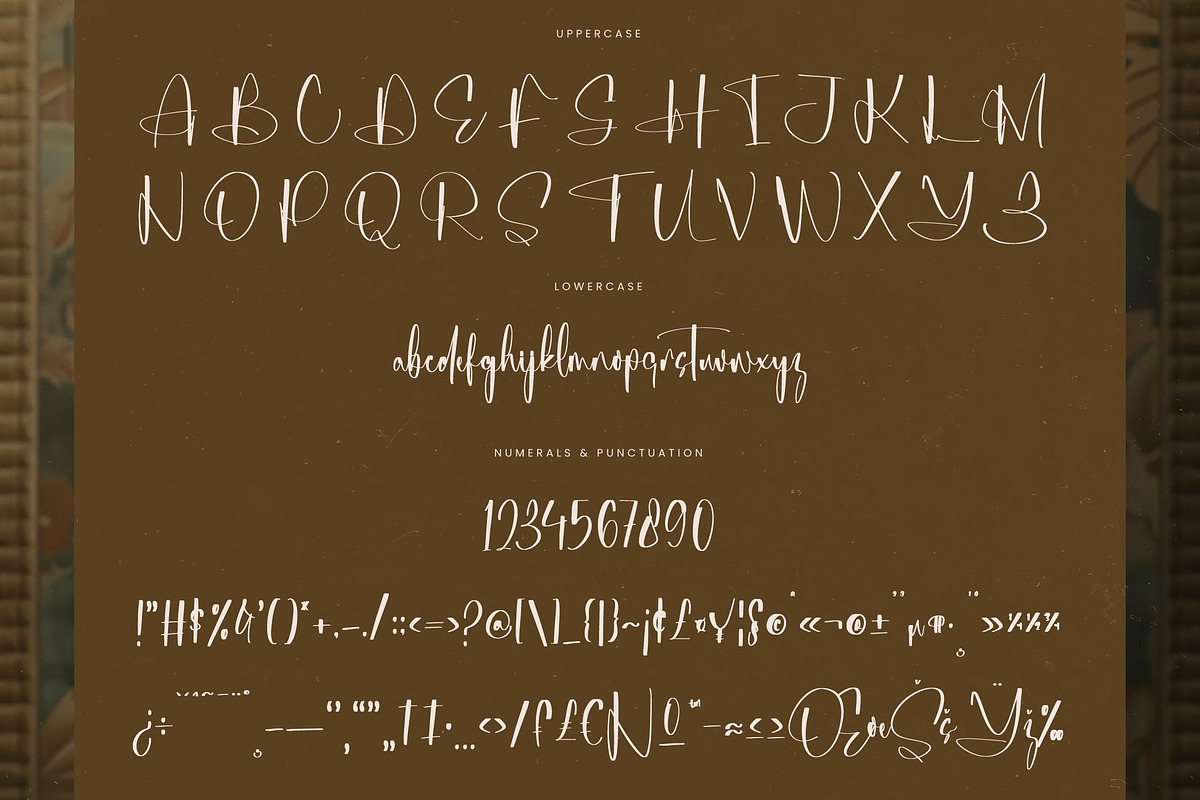 UPPERCASE
A B C D E F G H I J K L M
N O P Q R S T U V W X Y Z
LOWERCASE
abcdefghijklmnopqrstuvwxyz
NUMERALS & PUNCTUATION
1234567890
!"#$%&'()*+,-./:;<=>?@[\]_{|}~¡¢£¤¥¦§©«¬®±µ¶·»¼½¾
¿÷–—‘’‚“”„†‡•…‹›⁄ƒ₤€№™−≈≤≥ŒœŠšŸž‰